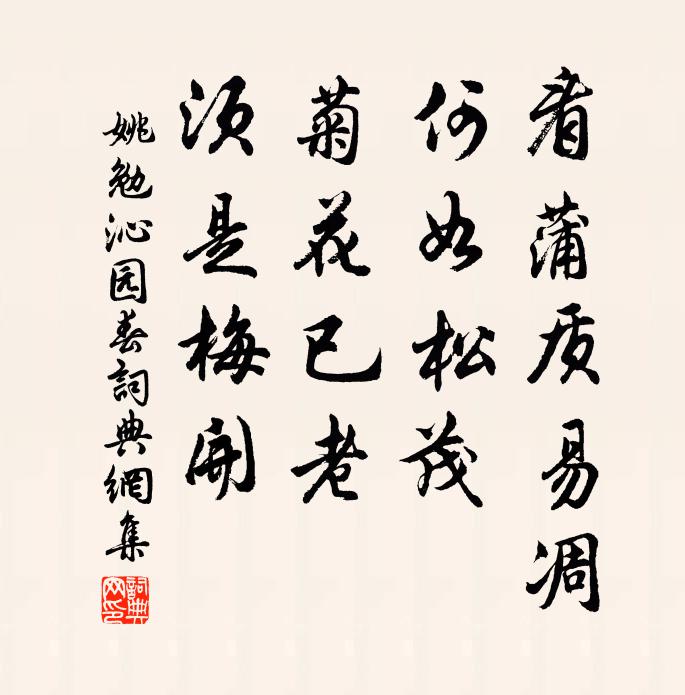 看蒲质易凋
何如松茂
菊花已老
须是梅开
姚勉沁园春詞典網集
詞典网印